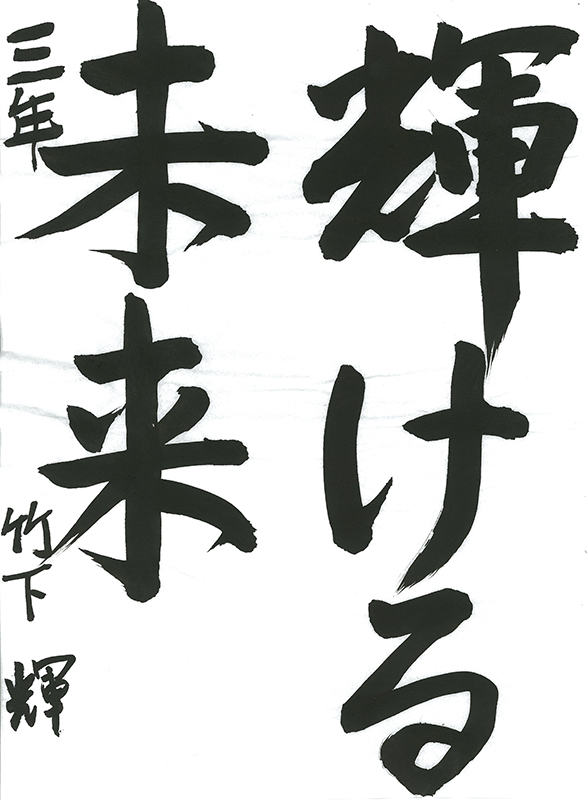 輝ける
未来
三年 竹下 輝